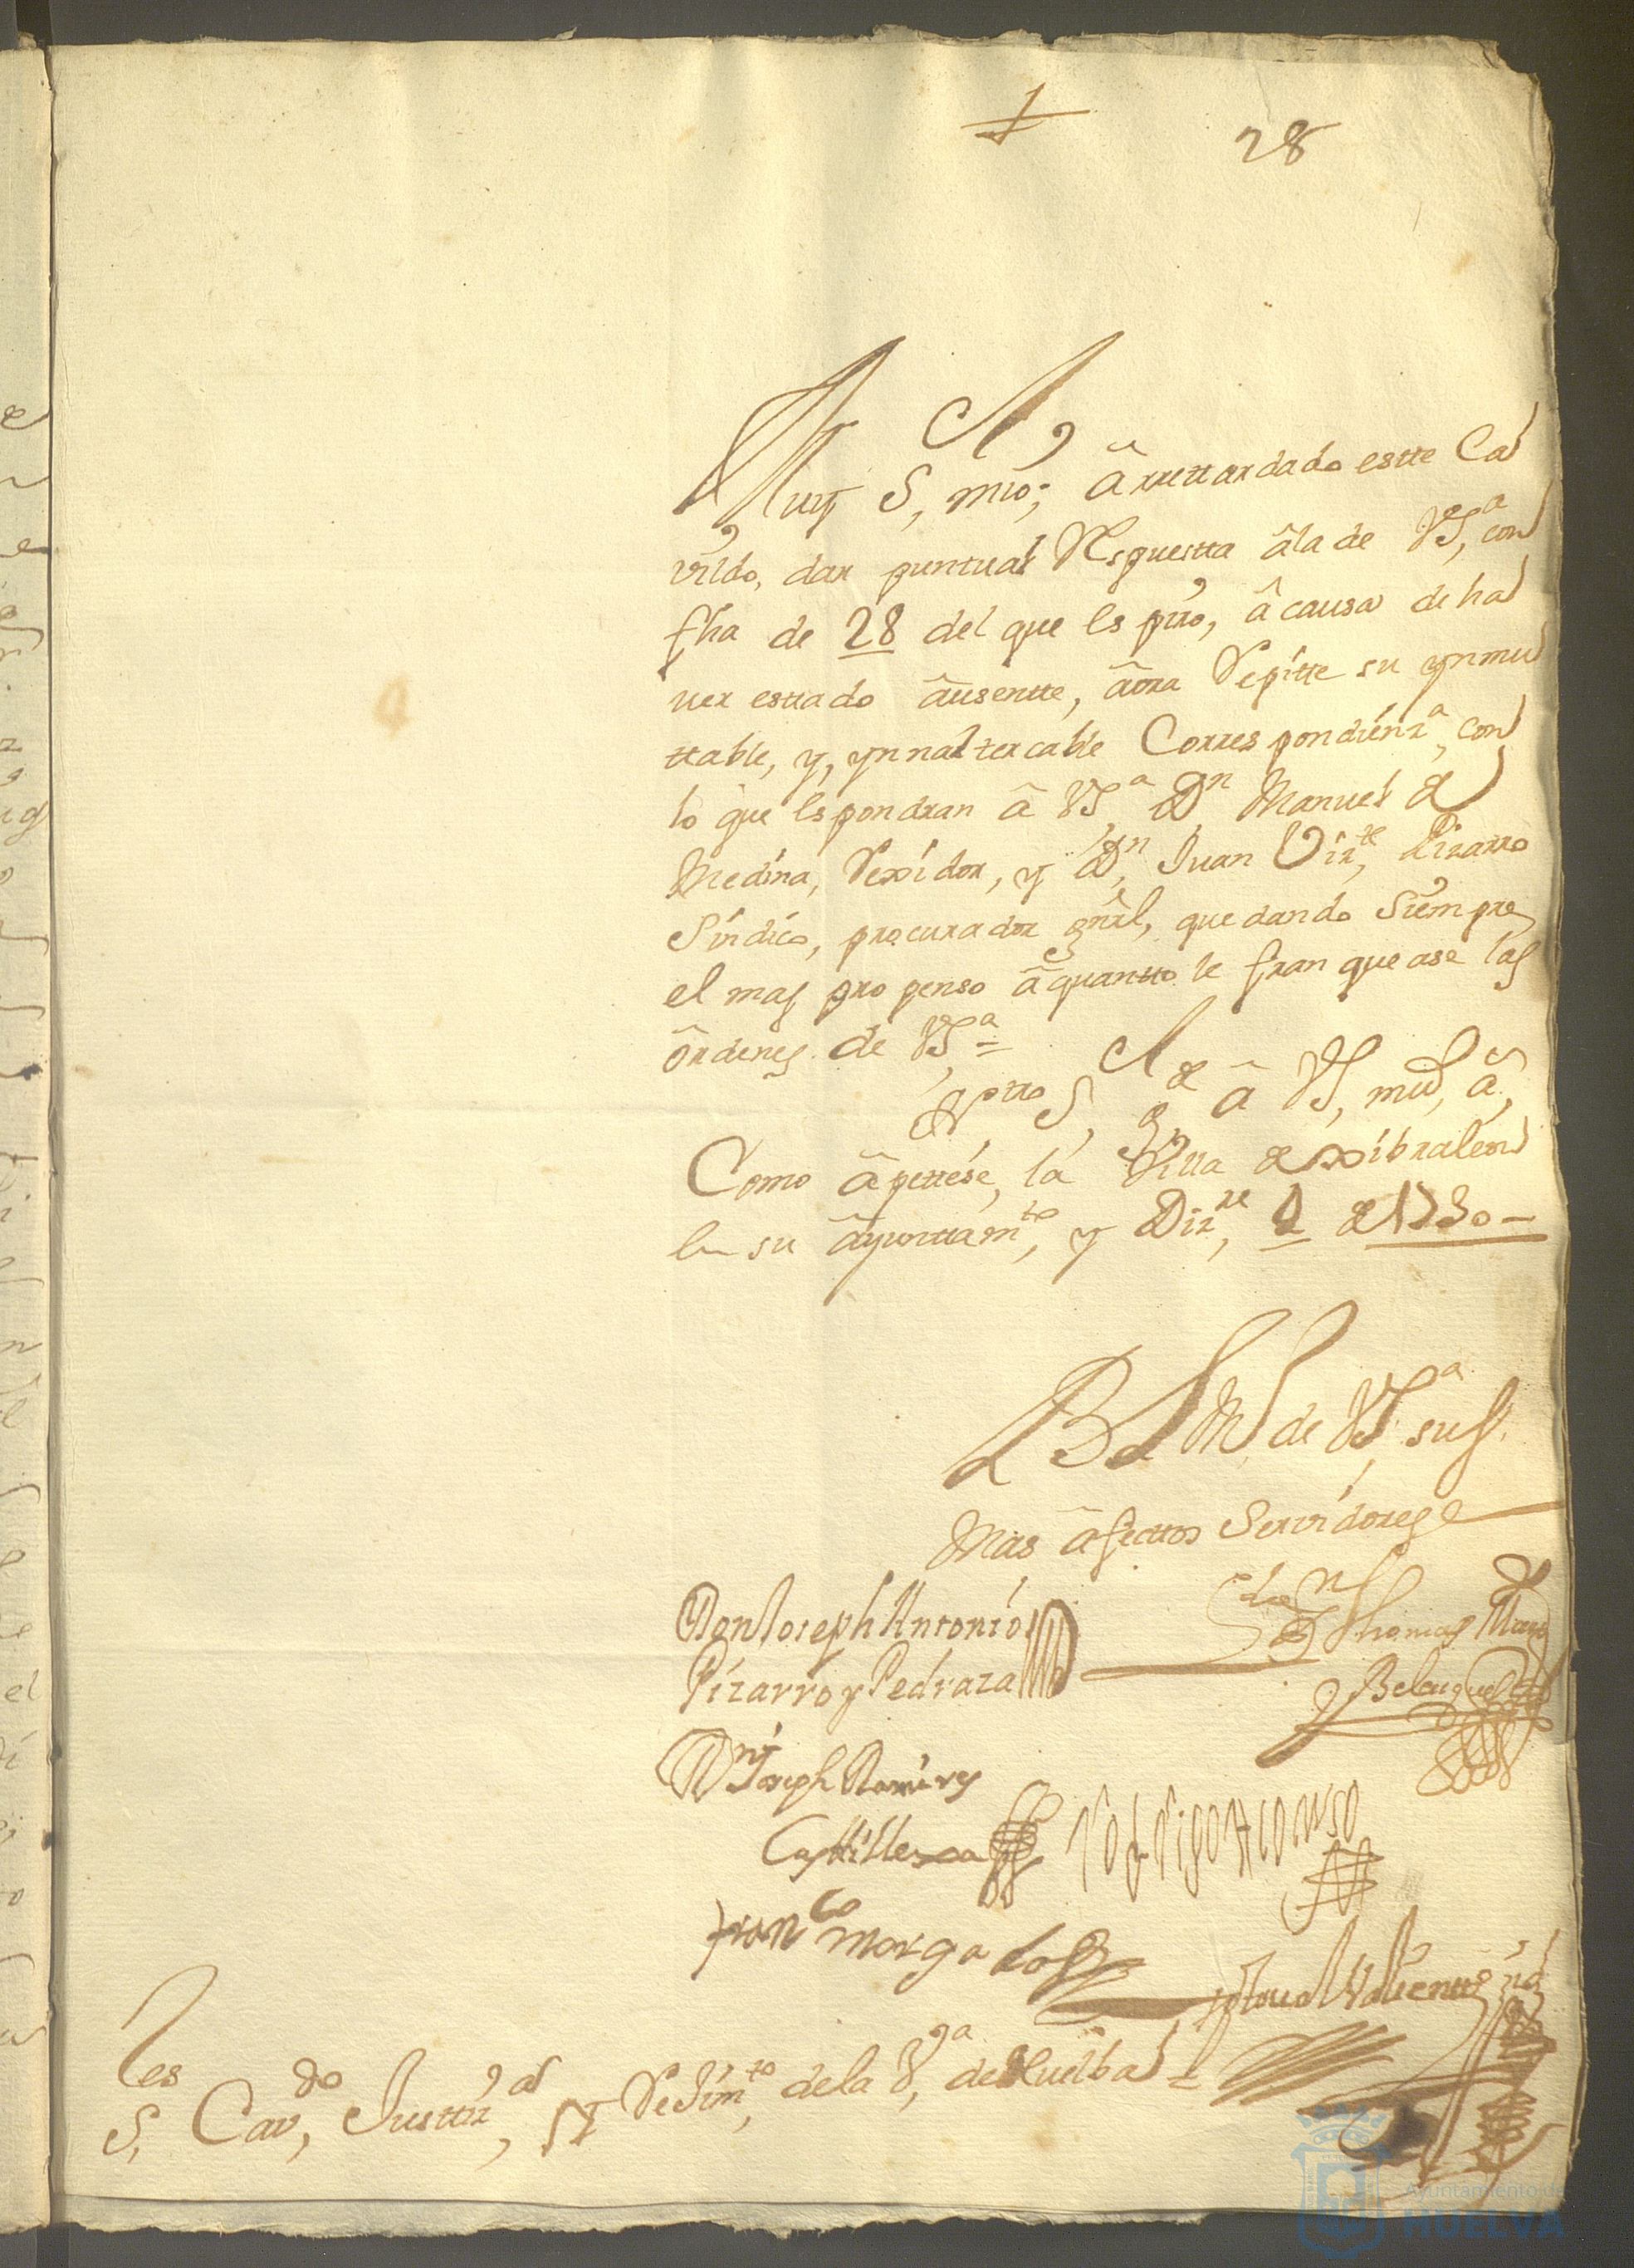 28
Muy S.r mio; â rrettardado estte Ca
vildo, dar puntual Respuestta âla de VS.ª con
fha de 28 del que es pmo, â causa de ha
ver estado âusentte, âora Repitte su ynmu
ttable, y, ynnaltercable Correspondienz.ª, con
lo que espondran â VS.ª Dn Manuel de
Medina, Rexidor, y Dn Juan Viz.te Pizarro
Sindico, procurador gnrl, quedando Siempre
el mas propenso â quantto le franquease las
ôrdenes de VS.ª =
Nro S.r g.de â VS. m.s a.s
Como âpettese, la Villa de Xibraleon
en su âyunttam.to, y Diz.re, 2 de 1730 =
BLM de VS.ª sus
Mas âfecttos Servidores
Don Joseph Antonio
Pizarro y Pedraza
Thomas
y Belasquez
Dn Joseph Ramires
Casttillexa
Rodrigo Alonso
Franco morgado
Valientte
S.res Cav.do, Justtiz.ª, y Rejim.to, dela V.ª de Huelba =
Ayuntamiento de
HUELVA